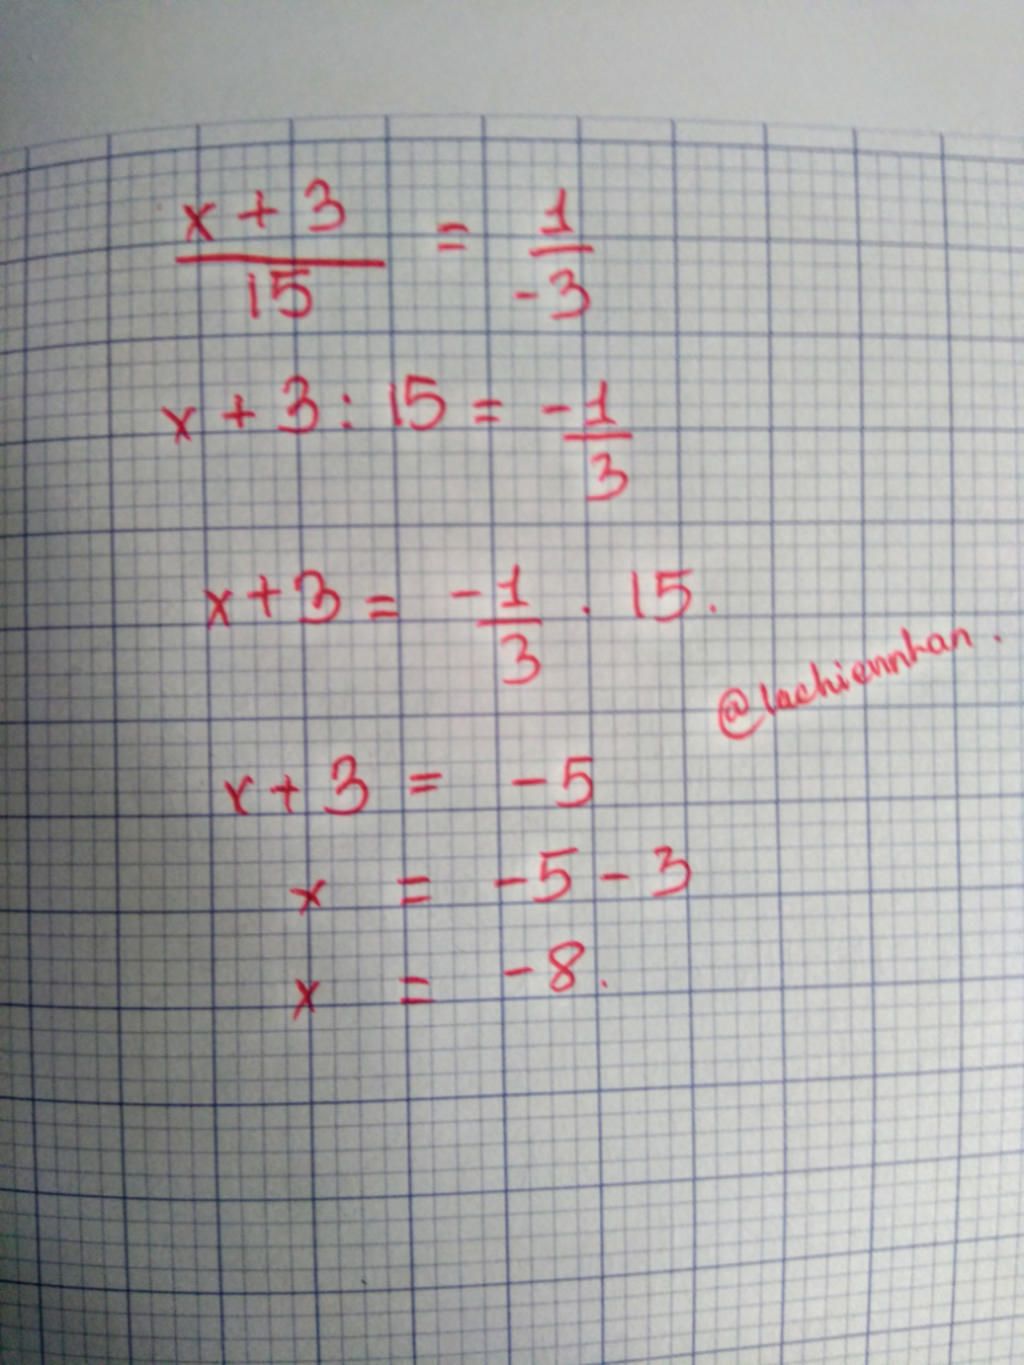 x + 3 / 15 = 1 / -3
x + 3 : 15 = - 1 / 3
x + 3 = - 1 / 3 . 15.
@lachiennhan.
x + 3 = -5
x = -5 - 3
x = -8.